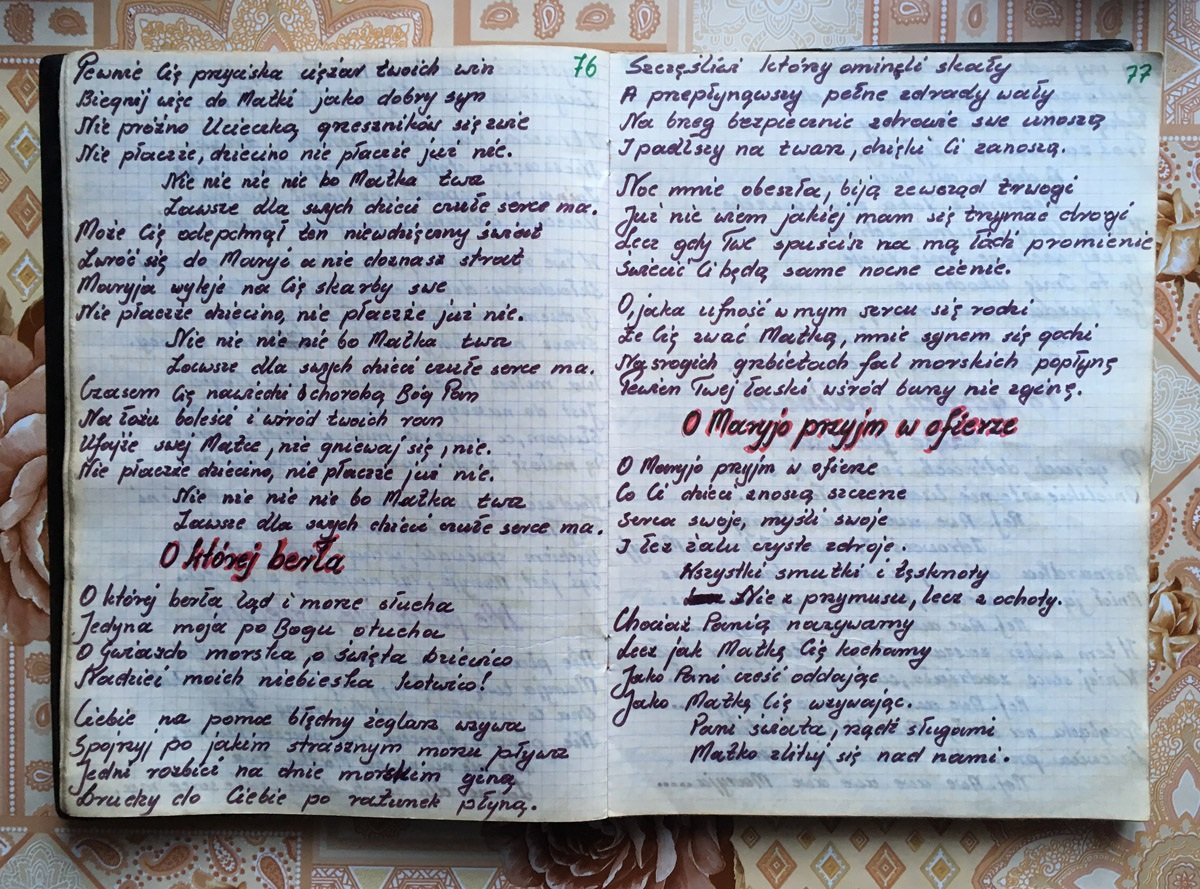 76
Pewnie Cię przyciska ciężar twoich win
Biegnij więc do Matki jako dobry syn
Nie próżno Ucieczką grzeszników się zwie
Nie płaczże, dziecino nie płaczże już nie.
Nie nie nie nie bo Matka twa
Zawsze dla swych dzieci czułe serce ma.
Może Cię odepchnął ten niewdzięczny świat
Zwróć się do Maryi a nie doznasz strat
Maryja wyleje na Cię skarby swe
Nie płaczże dziecino, nie płaczże już nie.
Nie nie nie nie bo Matka twa
Zawsze dla swych dzieci czułe serce ma.
Czasem Cię nawiedzi chorobą Bóg Pan
Na łożu boleści i wśród twoich ran
Ufajże swej Matce, nie gniewaj się, nie.
Nie płaczże dziecino, nie płaczże już nie.
Nie nie nie nie bo Matka twa
Zawsze dla swych dzieci czułe serce ma.
O której berła
O której berła ląd i morze słucha
Jedyna moja po Bogu otucha
O Gwiazdo morska, o święta Dziewico
Nadziei moich niebieska kotwico!
Ciebie na pomoc błędny żeglarz wzywa
Spojrzyj po jakim strasznym morzu pływa
Jedni rozbici na dnie morskim giną
Drudzy do Ciebie po ratunek płyną.
77
Szczęśliwi którzy ominęli skały
A przepłynąwszy pełne zdrady wały
Na brzeg bezpiecznie zdrowie swe unoszą
I padłszy na twarz, dzięki Ci zanoszą.
Noc mnie obeszła, biją zewsząd trwogi
Już nie wiem jakiej mam się trzymać drogi
Lecz gdy Twe spuścisz na mą łódź promienie
Świecić Ci będą same nocne cienie.
O, jaka ufność w mym sercu się rodzi
Że Cię zwać Matką, mnie synem się godzi
Na srogich grzbietach fal morskich popłynę
Pewien Twej łaski wśród burzy nie zginę.
O Maryjo przyjm w ofierze
O Maryjo przyjm w ofierze
Co Ci dzieci znoszą szczerze
Serca swoje, myśli swoje
I łez żalu czyste zdroje.
Wszystki smutki i tęsknoty
Nie z przymusu, lecz z ochoty.
Chociaż Panią nazywamy
Lecz jak Matkę Cię kochamy
Jako Pani cześć oddając
Jako Matkę Cię wzywając.
Pani świata, rządź sługami
Matko zlituj się nad nami.